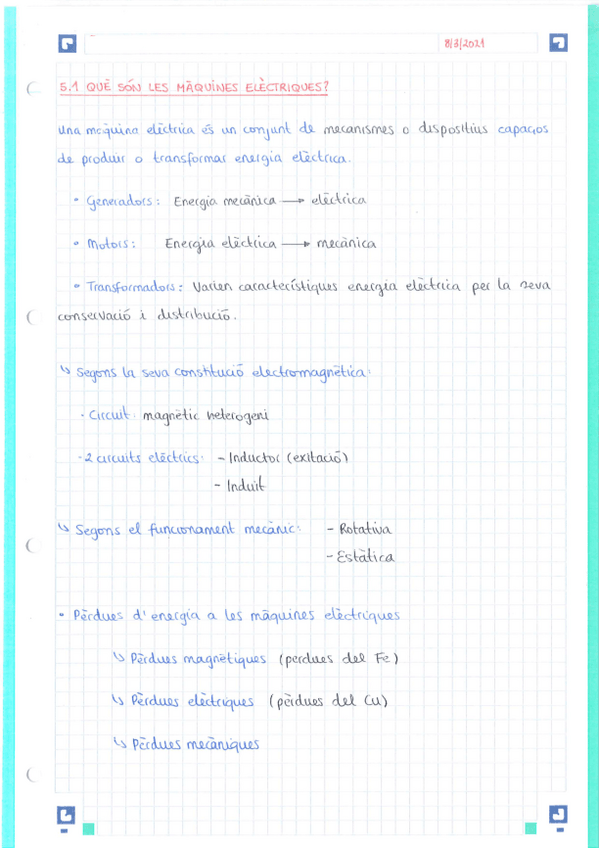 8/3/2021
5.1 QUÈ SÓN LES MÀQUINES ELÈCTRIQUES?
Una màquina elèctrica és un conjunt de mecanismes o dispositius capaços
de produir o transformar energia elèctrica.
• Generadors: Energia mecànica → elèctrica
• Motors: Energia elèctrica → mecànica
• Transformadors: Varien característiques energia elèctrica per la seva
conservació i distribució.
↳ Segons la seva constitució electromagnètica:
· Circuit: magnètic heterogeni
· 2 circuits elèctrics: - Inductor (exitació)
- Induït
↳ Segons el funcionament mecànic: - Rotativa
- Estàtica
• Pèrdues d'energia a les màquines elèctriques
↳ Pèrdues magnètiques (perdues del Fe)
↳ Pèrdues elèctriques (pèrdues del Cu)
↳ Pèrdues mecàniques